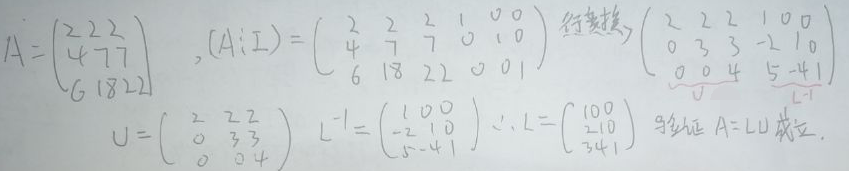 A = (2 2 2 / 4 7 7 / 6 18 22), (A⋮I) = (2 2 2 1 0 0 / 4 7 7 0 1 0 / 6 18 22 0 0 1) 行变换→ (2 2 2 1 0 0 / 0 3 3 -2 1 0 / 0 0 4 5 -4 1)
U L⁻¹
U = (2 2 2 / 0 3 3 / 0 0 4) L⁻¹ = (1 0 0 / -2 1 0 / 5 -4 1) ∴ L = (1 0 0 / 2 1 0 / 3 4 1) 验证 A = LU 成立.